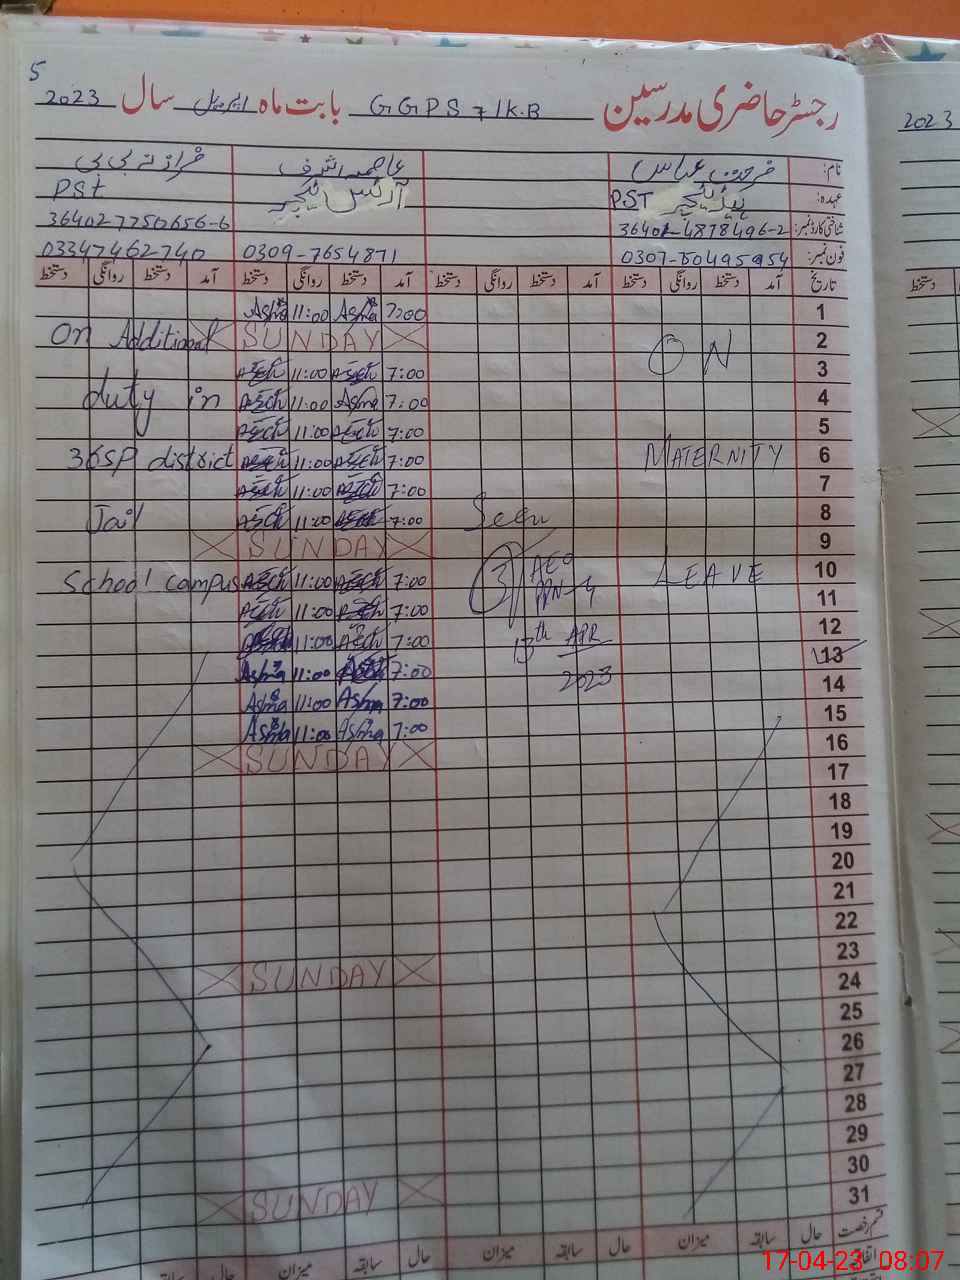 5
رجسٹر حاضری مدرسین GGPS 7/K.B بابت ماہ اپریل سال 2023
2023
نام: فرحت عباس عاصمہ اشرف بی بی
عہدہ: PST ہیڈ ٹیچر PST
شناختی کارڈ نمبر:
فون نمبر: 0309-7654871 03347462740
تاریخ آمد دستخط روانگی دستخط آمد دستخط روانگی دستخط آمد دستخط روانگی دستخط آمد دستخط روانگی دستخط
دستخط
1 7:00 Asma 11:00 Asma
2 SUNDAY On Additional
3 ON 7:00 11:00
4 7:00 Asma 11:00 duty in
5 7:00 11:00
6 MATERNITY 7:00 11:00 36SP district
7 7:00 11:00
8 Seen 7:00 11:00 Jail
9 SUNDAY
10 LEAVE AEO 7:00 11:00 School campus
11 7:00 11:00
12 7:00 11:00
13 13th APR 7:00 11:00 Asma
14 2023 7:00 Asma 11:00 Asma
15 7:00 Asma 11:00 Asma
16 SUNDAY
17
18
19
20
21
22
23
24 SUNDAY
25
26
27
28
29
30
31 SUNDAY
قسم رخصت حال سابقہ میزان حال سابقہ میزان حال سابقہ میزان حال سابقہ
17-04-23 08:07